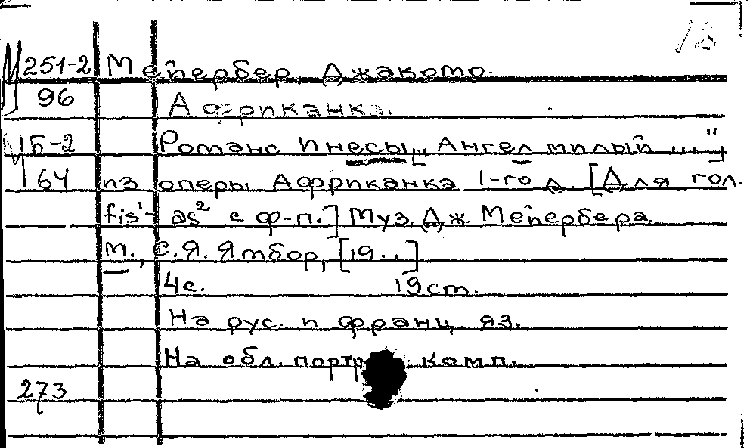 18
М 251-2 Мейербер, Джакомо.
96 Африканка.
М Б-2 Романс Инесы „Ангел милый ..."
64 из оперы Африканка 1-го д. [Для гол.
fis¹- as² с ф-п.] Муз. Дж. Мейербера.
М., С.Я. Ямбор, [19..]
4с. 19 ст.
На рус. и франц. яз.
На обл. портр. комп.
273